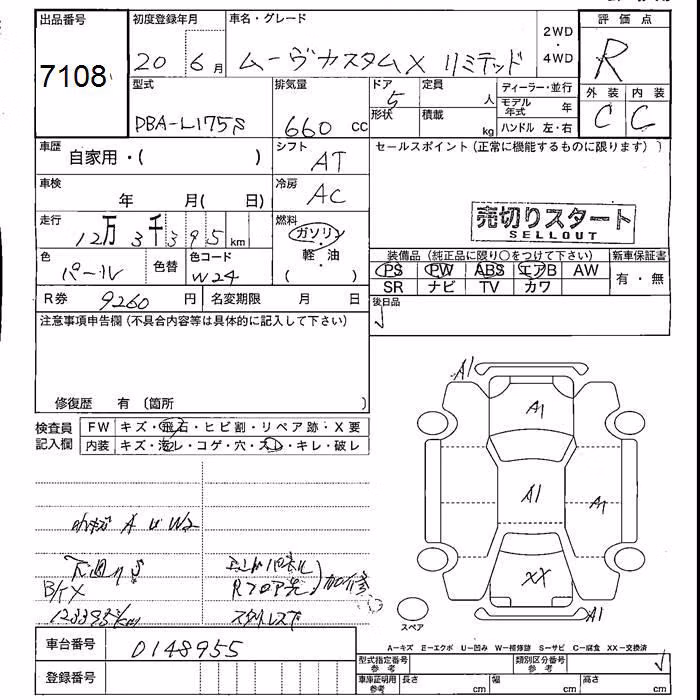 出品番号 初度登録年月 車名・グレード 2WD・4WD 評価点
7108 20 6月 ムーヴカスタムX リミテッド R
型式 排気量 ドア 5 定員 人 ディーラー・並行 外装 内装
DBA-L175S 660 cc 形状 積載 kg モデル年式 年 C C
ハンドル 左・右
車歴 自家用・( ) シフト AT セールスポイント(正常に機能するものに限ります)
車検 年 月( 日) 冷房 AC
走行 12万3千395km 燃料 ガソリン・軽・油 ( )
売切りスタート
SELLOUT
色 パール 色替 色コード W24
装備品(純正品に限り○をつけて下さい) 新車保証書
PS PW ABS エアB AW 有・無
SR ナビ TV カワ
R券 9260円 名変期限 月 日 後日品
注意事項申告欄(不具合内容等は具体的に記入して下さい)
修復歴 有 〔箇所 〕
検査員記入欄 FW キズ・飛石・ヒビ割・リペア跡・X要
内装 キズ・汚レ・コゲ・穴・スレ・キレ・破レ
A1
A1
A1
A1
XX
A1
A U W2
下廻りS
B/T X
123395km
スペア
A-キズ E-エクボ U-凹み W-補修跡 S-サビ C-腐食 XX-交換済
車台番号 0148955
型式指定番号 参考 類別区分番号 参考
登録番号
車庫証明用 参考 長さ cm 幅 cm 高さ cm